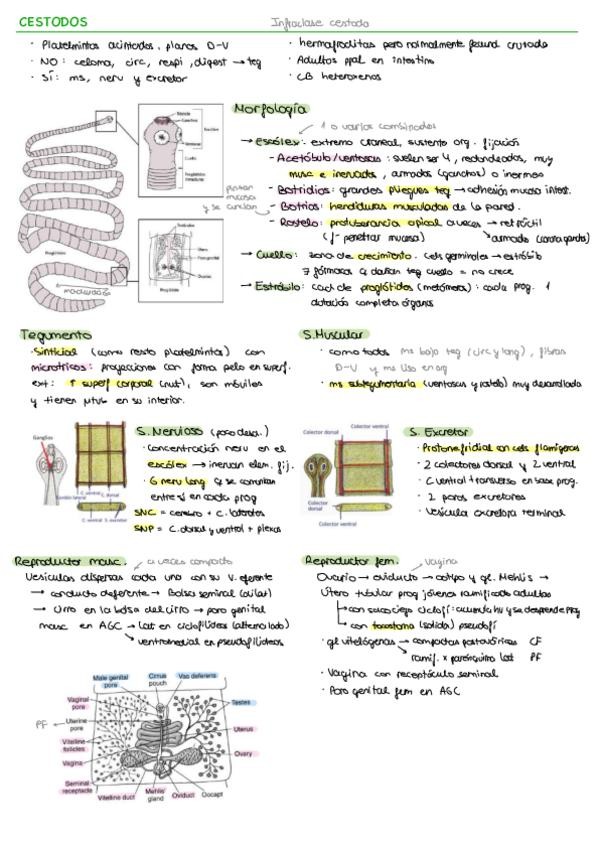 CESTODOS
Infraclase cestoda
· Platelmintos acintados, planos D-V
· NO: celoma, circ, respi, digest → teg
· SÍ: ms, nerv y excretor
· hermafroditas pero normalmente fecund cruzada
· Adultos ppal en intestino
· CB heteroxenos
Morfología
1 o varios combinados
→ Escólex: extremo craneal, sustento org. fijación
- Acetábulo/ventosas: suelen ser 4, redondeadas, muy
musc e inervadas, armados (ganchos) o inermes
- Botridios: grandes pliegues teg → adhesión mucosa intest.
- Botrios: hendiduras musculadas de la pared.
- Rostelo: protuberancia apical a veces → retráctil
(f- penetrar mucosa)
armado (corona ganchos)
→ Cuello: zona de crecimiento. cels germinales → estróbilo
→ Estróbilo: cad de proglótidos (metámeros): cada prog. 1
dotación completa órganos
maduración
Escólex
Cuello
Proglótidos
Ovarios
Tegumento
· Sinticial (como resto platelmintos) con
microtricos: proyecciones con forma pelo en superf.
ext: ↑ superf corporal (nut), son móviles
y tienen en su interior.
S. Muscular
· como todos ms bajo teg (circ y long), fibras
D-V y ms liso en org
· ms subtegumentaria (ventosas y rostelo) muy desarrollada
Ganglios
C. ventral
C. dorsal
C. ventral
S. excretor
S. Nervioso (poco desa.)
· Concentración nerv en el
escólex → inervan elem. fij.
· 6 nerv long q se comunican
entre sí en cada prog
SNC = cerebro + C. laterales
SNP = C. dorsal y ventral + plexos
Colector dorsal
Colector ventral
Colector dorsal
Colector ventral
S. Excretor
· Protonefridial con cels flamígeras
· 2 colectores dorsal y 2 ventral
· C ventral + transverso en base prog.
· 2 poros excretores
· Vesícula excretora terminal
Reproductor masc.
a veces compacto
Vesículas dispersas cada una con su V. eferente
→ conducto deferente → Bolsa seminal (avilar)
→ cirro en la bolsa del cirro → poro genital
masc en AGC → Lat en ciclofilídeos (alterna lado)
ventromedial en pseudofilídeos
Reproductor fem.
vagina
Ovario → oviducto → ootipo y gl. Mehlis →
útero tubular prog jóvenes ramificado adultos
con tocostoma (salida) pseudofi
· gl vitelógenas → compactas postováricas CF
ramif. x parénquima lat PF
· Vagina con receptáculo seminal
· Poro genital fem en AGC
Male genital pore
Cirrus pouch
Vas deferens
Vaginal pore
Testes
PF ←
Uterine pore
Uterus
Vitelline follicles
Vagina
Ovary
Seminal receptacle
Vitelline duct
Mehlis' gland
Oviduct
Oocapt